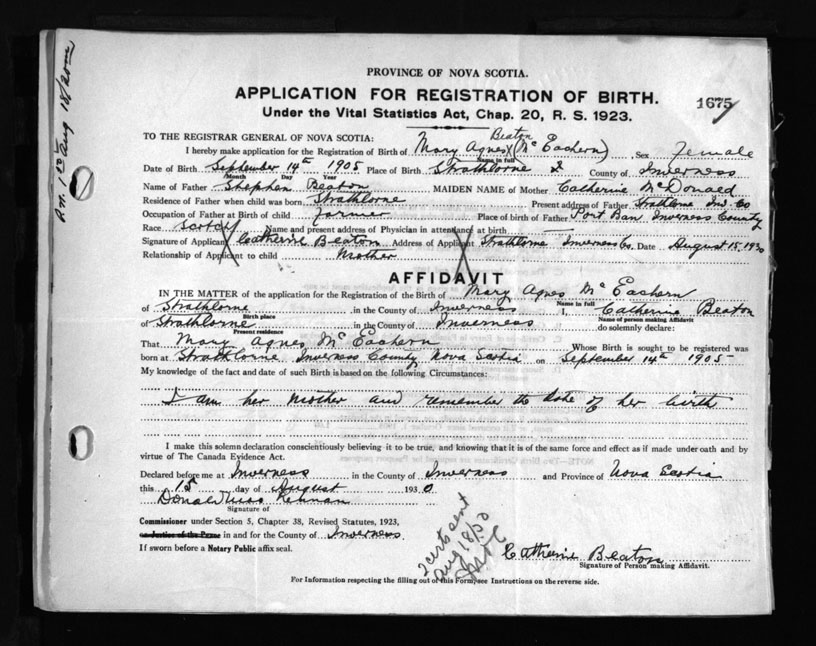 PROVINCE OF NOVA SCOTIA.
APPLICATION FOR REGISTRATION OF BIRTH.
1675
Under the Vital Statistics Act, Chap. 20, R. S. 1923.
TO THE REGISTRAR GENERAL OF NOVA SCOTIA:
Beaton
I hereby make application for the Registration of Birth of Mary Agnes (Mc Eachern) Sex Female
Name in full
Date of Birth September 14th 1905 Place of Birth Strathlorne County of Inverness
Month Day Year
Name of Father Stephen Beaton MAIDEN NAME of Mother Catherine McDonald
Residence of Father when child was born Strathlorne Present address of Father Strathlorne Inv. Co
Occupation of Father at Birth of child farmer Place of birth of Father Port Ban Inverness County
Race Scotch Name and present address of Physician in attendance at birth
Signature of Applicant Catherine Beaton Address of Applicant Strathlorne Inverness Co. Date August 15, 1930
Relationship of Applicant to child Mother
AFFIDAVIT
IN THE MATTER of the application for the Registration of the Birth of Mary Agnes Mc Eachern
Name in full
of Strathlorne in the County of Inverness I, Catherine Beaton
Birth place Name of person making Affidavit
of Strathlorne in the County of Inverness do solemnly declare:
Present residence
That Mary Agnes Mc Eachern Whose Birth is sought to be registered was
born at Strathlorne Inverness County Nova Scotia on September 14th 1905
My knowledge of the fact and date of such Birth is based on the following Circumstances:
I am her mother and remember the date of her birth
I make this solemn declaration conscientiously believing it to be true, and knowing that it is of the same force and effect as if made under oath and by
virtue of The Canada Evidence Act.
Declared before me at Inverness in the County of Inverness and Province of Nova Scotia
this 15 day of August 1930
Donald
Signature of
Commissioner under Section 5, Chapter 38, Revised Statutes, 1923,
or Justice of the Peace in and for the County of Inverness.
If sworn before a Notary Public affix seal.
Catherine Beaton
Signature of Person making Affidavit.
For Information respecting the filling out of this Form, see Instructions on the reverse side.
2 certs sent
Aug 18/30